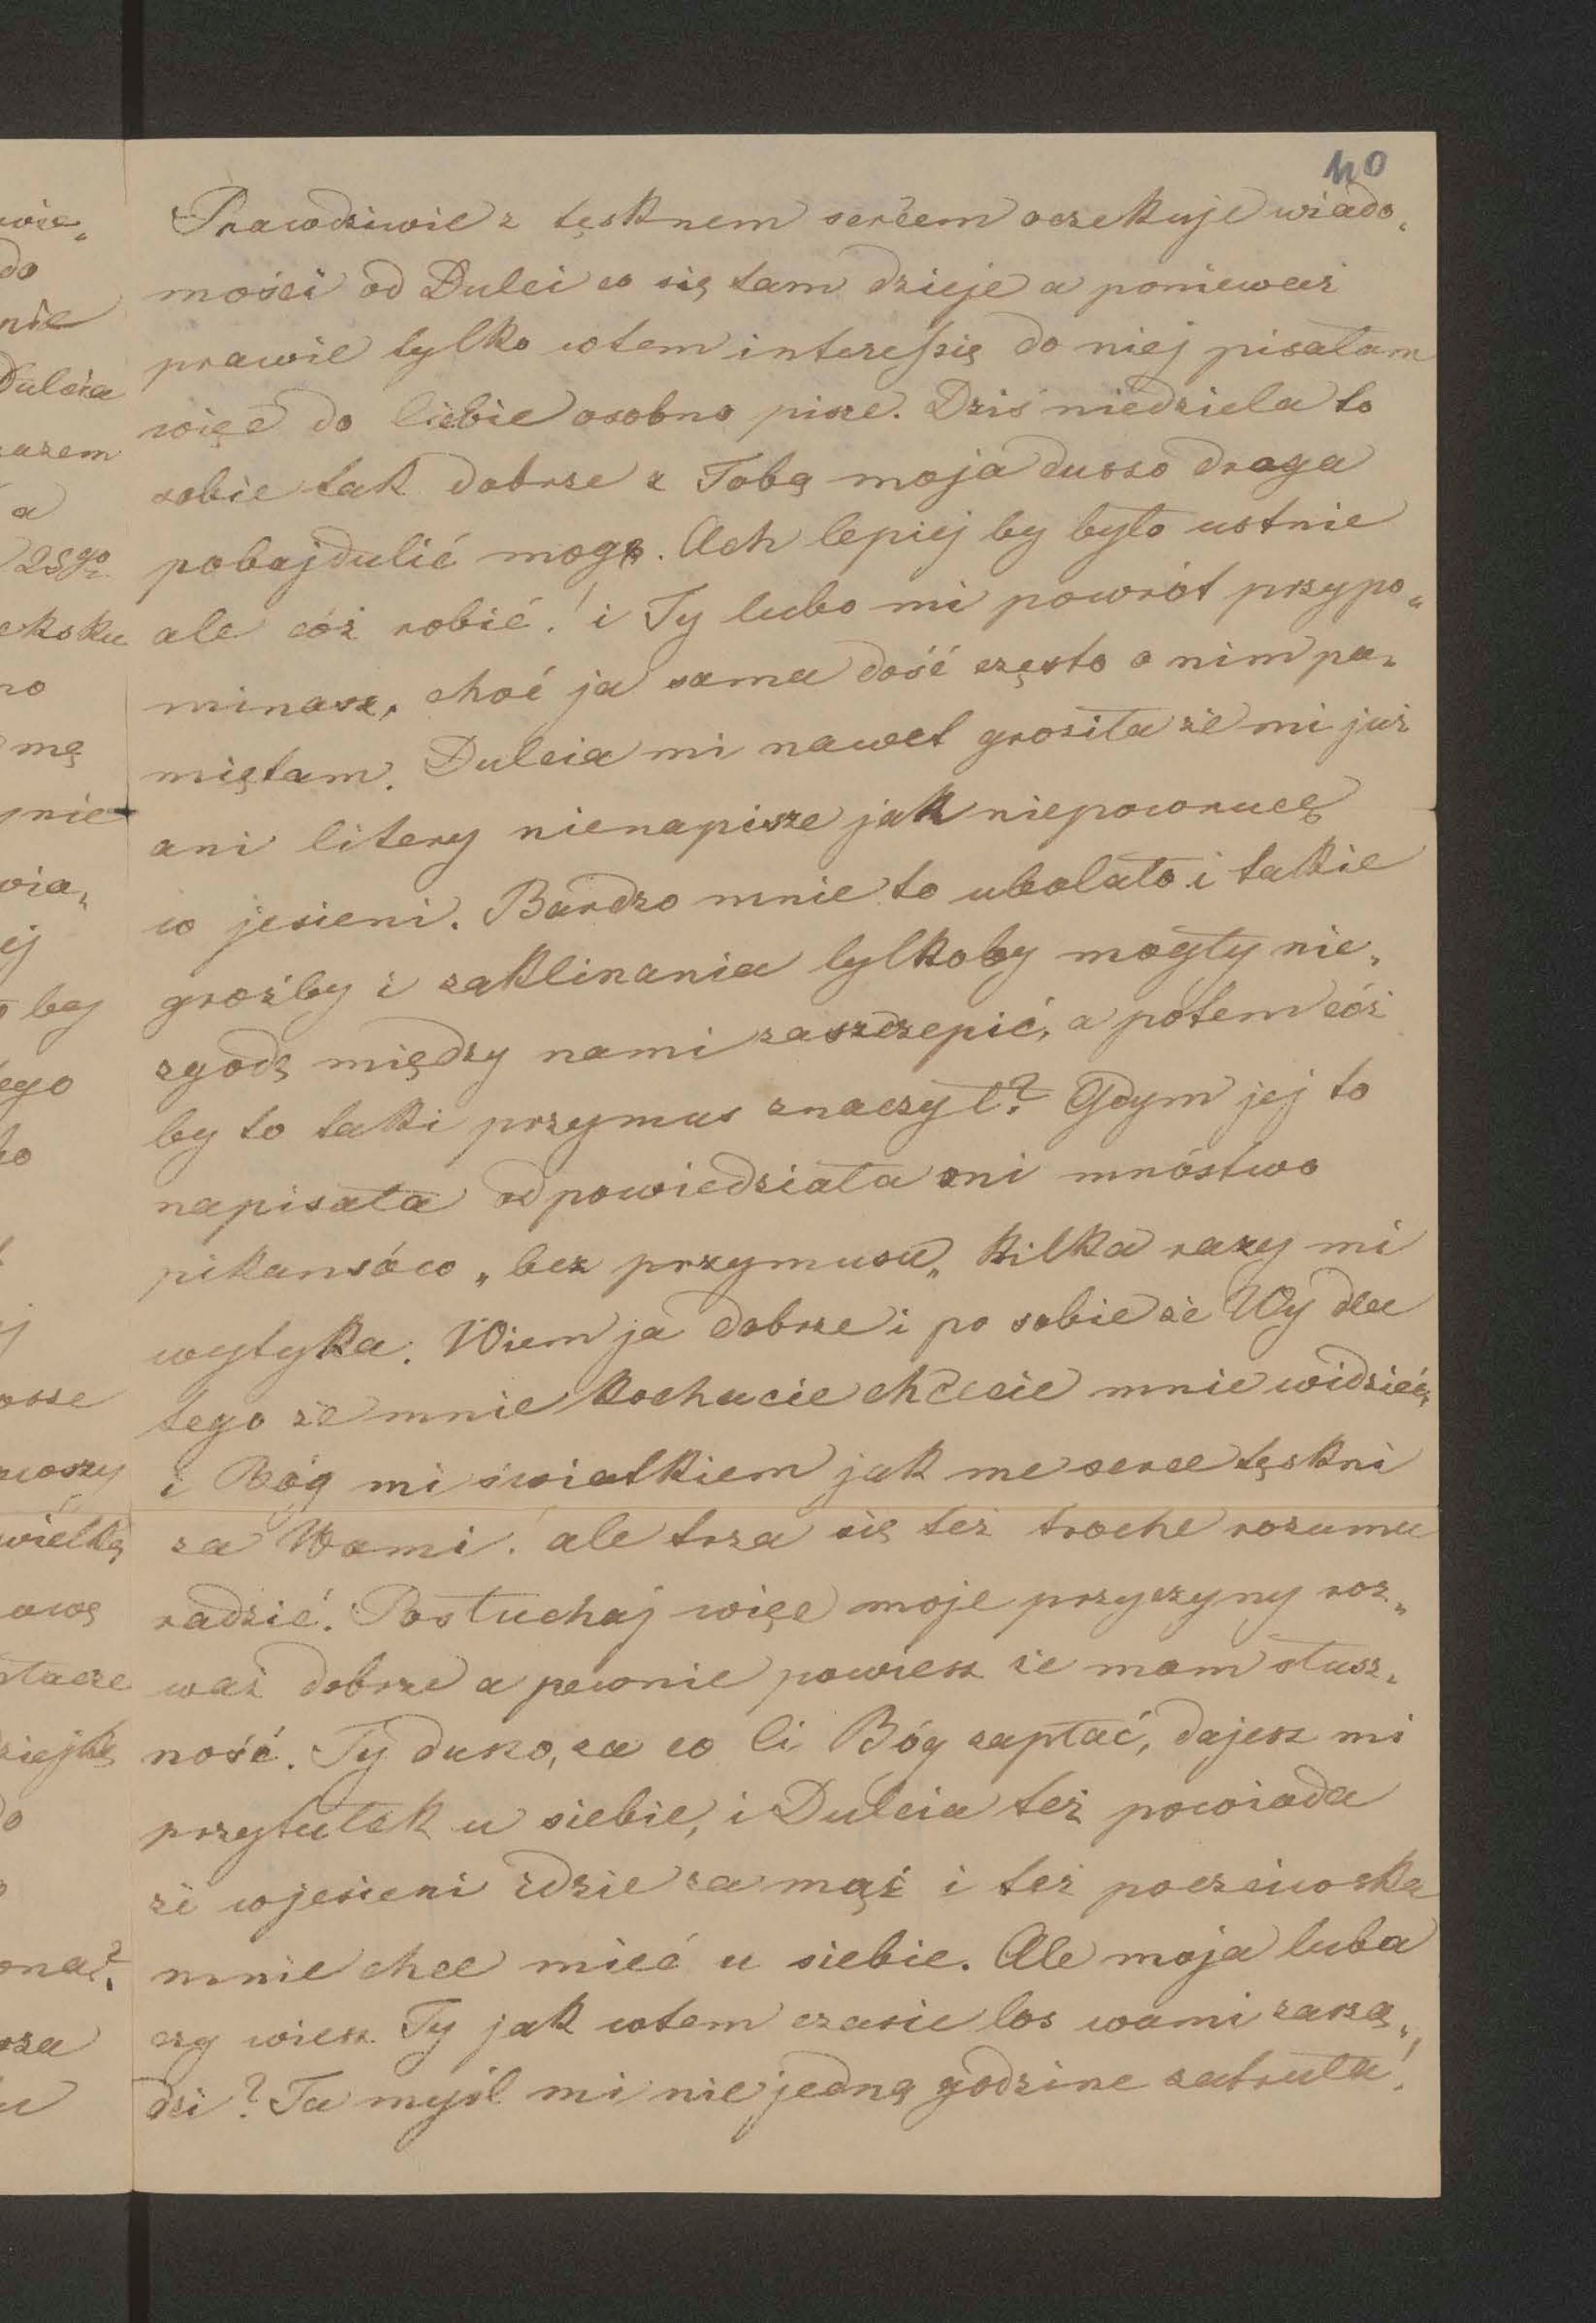 40
Prawdziwie z tęsknem sercem oczekuje wiado„
mości od Dulci co się tam dzieje a ponieważ
prawie tylko wtem interessię do niej pisałam
więc do Ciebie osobno pisze. Dziś niedziela to
sobie tak dobrze z Tobą moja duszo droga
pobajdulić mogę. Ach lepiej by było ustnie
ale cóż robić! i Ty lubo mi powrót przypo„
minasz, choć ja sama dość często o nim pa„
miętam. Dulcia mi nawet groziła że mi już
ani litery nienapisze jak niepowrucę
w jesieni. Bardzo mnie to ubolało i takie
groźby i zaklinania tylkoby mogły nie„
zgodę między nami zaszczepić, a potem cóż
by to taki przymus znaczył? Gdym jej to
napisała odpowiedziała mi mnóstwo
pikansów „bez przymusu„ kilka razy mi
wytyka. Wiem ja dobrze i po sobie że Wy dla
tego że mnie kochacie chcecie mnie widzieć,
i Bóg mi światkiem jak me serce tęskni
za Wami! ale trza się też troche rozumu
radzić! Posłuchaj więc moje przyczyny roz„
waż dobrze a pewnie powiesz że mam słusz„
ność. Ty duszo, za co Ci Bóg zapłać, dajesz mi
przytułek u siebie, i Dulcia też powiada
że wjesieni idzie za mąż i też poczciwoska
mnie chce mieć u siebie. Ale moja luba
czy wiesz Ty jak wtem czasie los wami zarzą„
dzi? Ta myśl mi nie jedną godzine zatruła!
wie„
do
nie
Dulcia
razem
a
25go
no
mą
wia„
ej
by
ego
wielką
ową
do